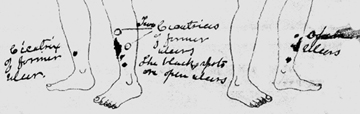 Cicatrix
of former
ulcer.
Two
Cicatrices
of former
ulcers
The black spots
are open ulcers
Open
ulcers